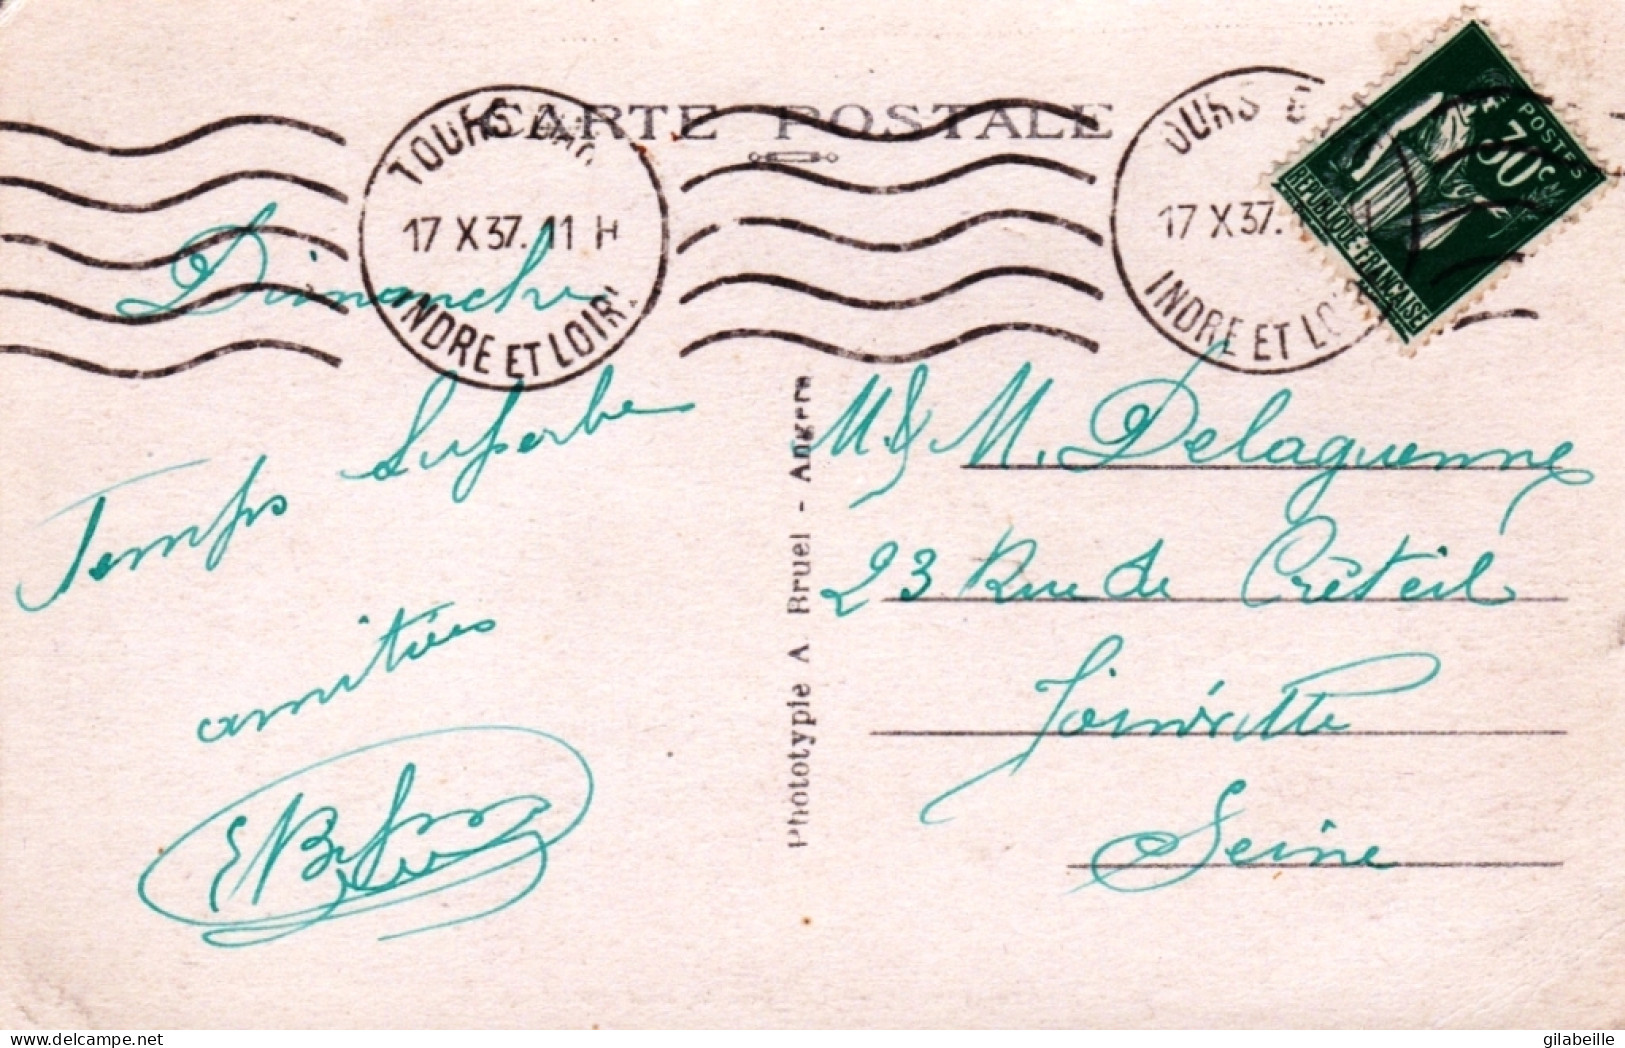 CARTE POSTALE
TOURS GAR
17 X 37. 11 H
INDRE ET LOIRE
OURS G
17 X 37. H
INDRE ET LO
POSTES
30c
REPUBLIQUE-FRANÇAISE
Dimanche
Temps superbe
amitiés
Phototypie A Bruel - Angers
M. & M. Delaguenne
23 Rue de Créteil
Joinville
Seine
gilabeille